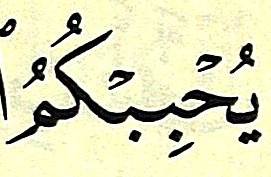 يُحْبِبْكُمُ